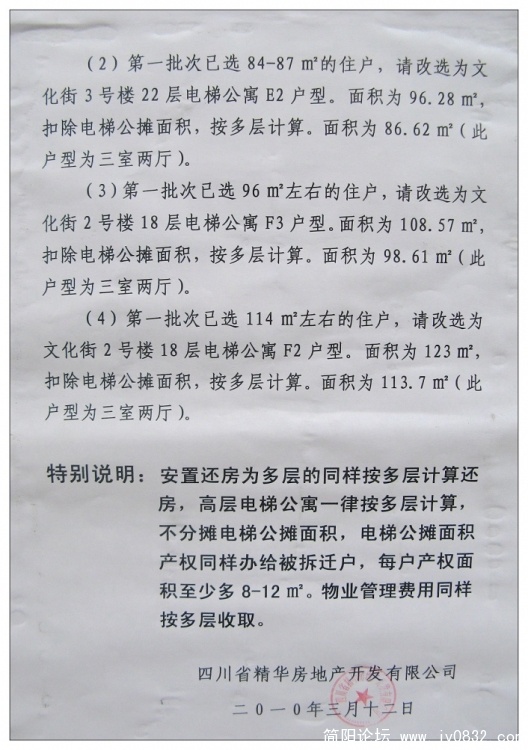 （2）第一批次已选 84-87 ㎡的住户，请改选为文
化街 3 号楼 22 层电梯公寓 E2 户型。面积为 96.28 ㎡，
扣除电梯公摊面积，按多层计算。面积为 86.62 ㎡（此
户型为三室两厅）。
（3）第一批次已选 96 ㎡左右的住户，请改选为文
化街 2 号楼 18 层电梯公寓 F3 户型。面积为 108.57 ㎡，
扣除电梯公摊面积，按多层计算。面积为 98.61 ㎡（此
户型为三室两厅）。
（4）第一批次已选 114 ㎡左右的住户，请改选为
文化街 2 号楼 18 层电梯公寓 F2 户型。面积为 123 ㎡，
扣除电梯公摊面积，按多层计算。面积为 113.7 ㎡（此
户型为三室两厅）。
特别说明：安置还房为多层的同样按多层计算还
房，高层电梯公寓一律按多层计算，
不分摊电梯公摊面积，电梯公摊面积
产权同样办给被拆迁户，每户产权面
积至少多 8-12 ㎡。物业管理费用同样
按多层收取。
四川省精华房地产开发有限公司
二〇一〇年三月十二日
简阳论坛 www.jy0832.com